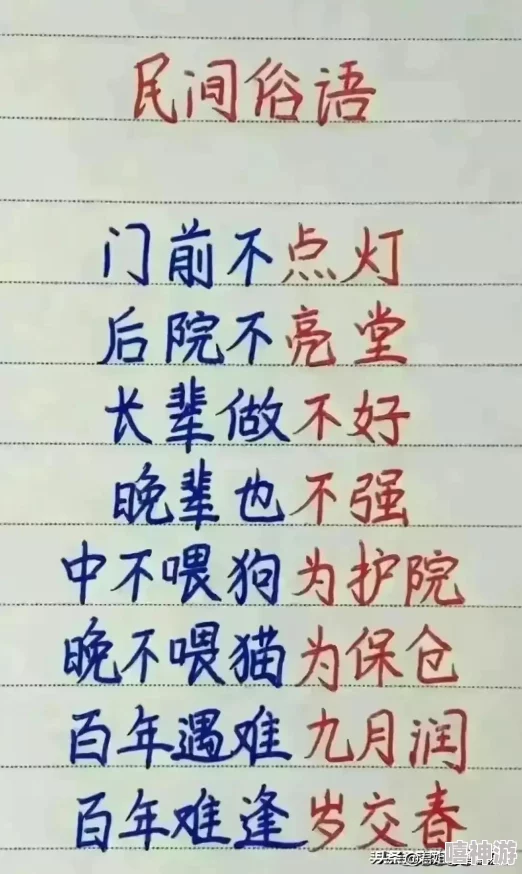 民间俗语
门前不点灯
后院不亮堂
长辈做不好
晚辈也不强
中不喂狗为护院
晚不喂猫为保仓
百年遇难九月润
百年难逢岁交春
嘻神游